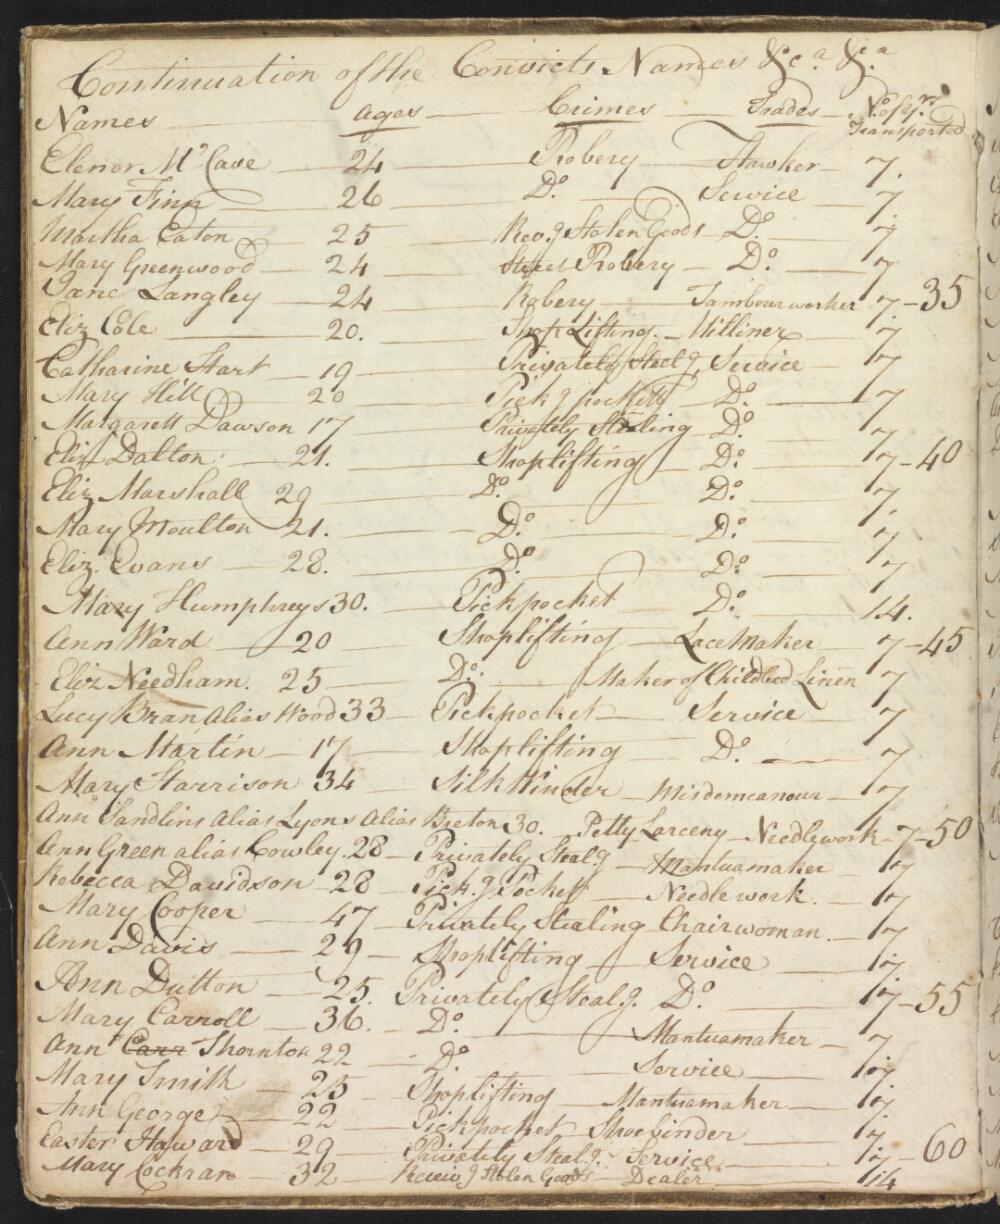 Continuation of the Convicts Names &c.a &.a
Names ages Crimes Trades No. of yrs. Transported
Elenor McCave 24 Robery Hawker 7.
Mary Finn 26 Do. Service 7
Martha Eaton 25 Recg. Stolen Goods Do. 7
Mary Greenwood 24 Street Robery Do. 7
Jane Langley 24 Robery Tambourworker 7-35
Eliz Cole 20. Shop Lifting Milliner 7
Catharine Hart 19 Privately Stealg. Service 7
Mary Hill 20 Pickg pocketts Do. 7
Margarett Dawson 17 Privately Stealing Do. 7
Eliz Dalton 21. Shoplifting Do. 7-40
Eliz Marshall 29 Do. Do. 7.
Mary Moulton 21. Do. Do. 7
Eliz. Evans 28. Do. Do. 7
Mary Humphreys 30. Pickpocket Do. 14.
Ann Ward 20 Shoplifting Lace Maker 7-45
Eliz Needham. 25 Do. Maker of Childbed Linen 7
Lucy Bran alias Wood 33 Pickpocket Service 7
Ann Martin 17 Shoplifting Do. 7
Mary Harrison 34 Silk Winder Misdemeanour 7
Ann Sandlins alias Lyons alias Breton 30. Petty Larceny Needlework 7-50
Ann Green alias Cowley. 28 Privately Stealg Mantuamaker 7
Rebecca Davidson 28 Pickg Pocketts Needlework. 7
Mary Cooper 47 Privately Stealing Chairwoman. 7
Ann Davis 29 Shoplifting Service 7.
Ann Dutton 25. Privately Stealg. Do. 7-55
Mary Carroll 36. Do. Mantuamaker 7.
Ann Carr Thornton 22 Do. Service 7
Mary Smith 25 Shoplifting Mantuamaker 7.
Ann George 22 Pickpocket Shoebinder 7
Easter Haward 29 Privately Stealg. Service 7-60
Mary Cockran 32 Receivg Stolen Goods Dealer 14